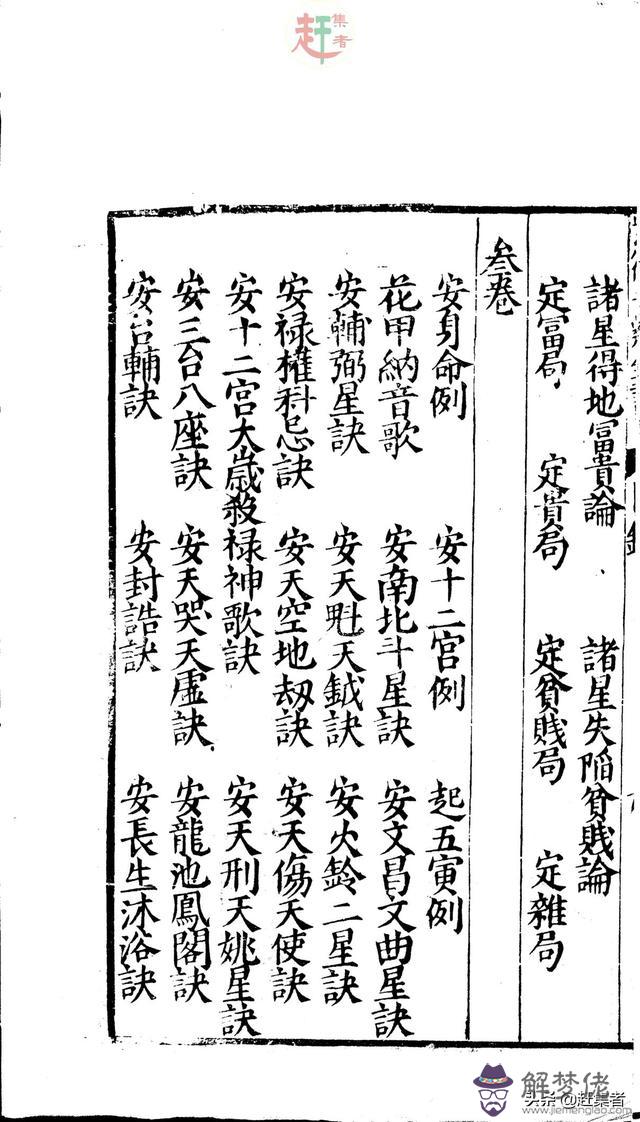 赶集者
諸星得地富貴論　諸星失陷貧賤論
定富局　定貴局　定貧賤局　定雜局
叅卷
安身命例　安十二宫例　起五寅例
花甲納音歌　安南北斗星訣　安文昌文曲星訣
安輔弼星訣　安天魁天鉞訣　安火鈴二星訣
安禄權科忌訣　安天空地刼訣　安天傷天使訣
安十二宮太歲殺禄神歌訣　安天刑天姚星訣
安三台八座訣　安天哭天虛訣　安龍池鳳閣訣
安台輔訣　安封誥訣　安長生沐浴訣
解梦佬
头条@赶集者
www.jiemenglao.com